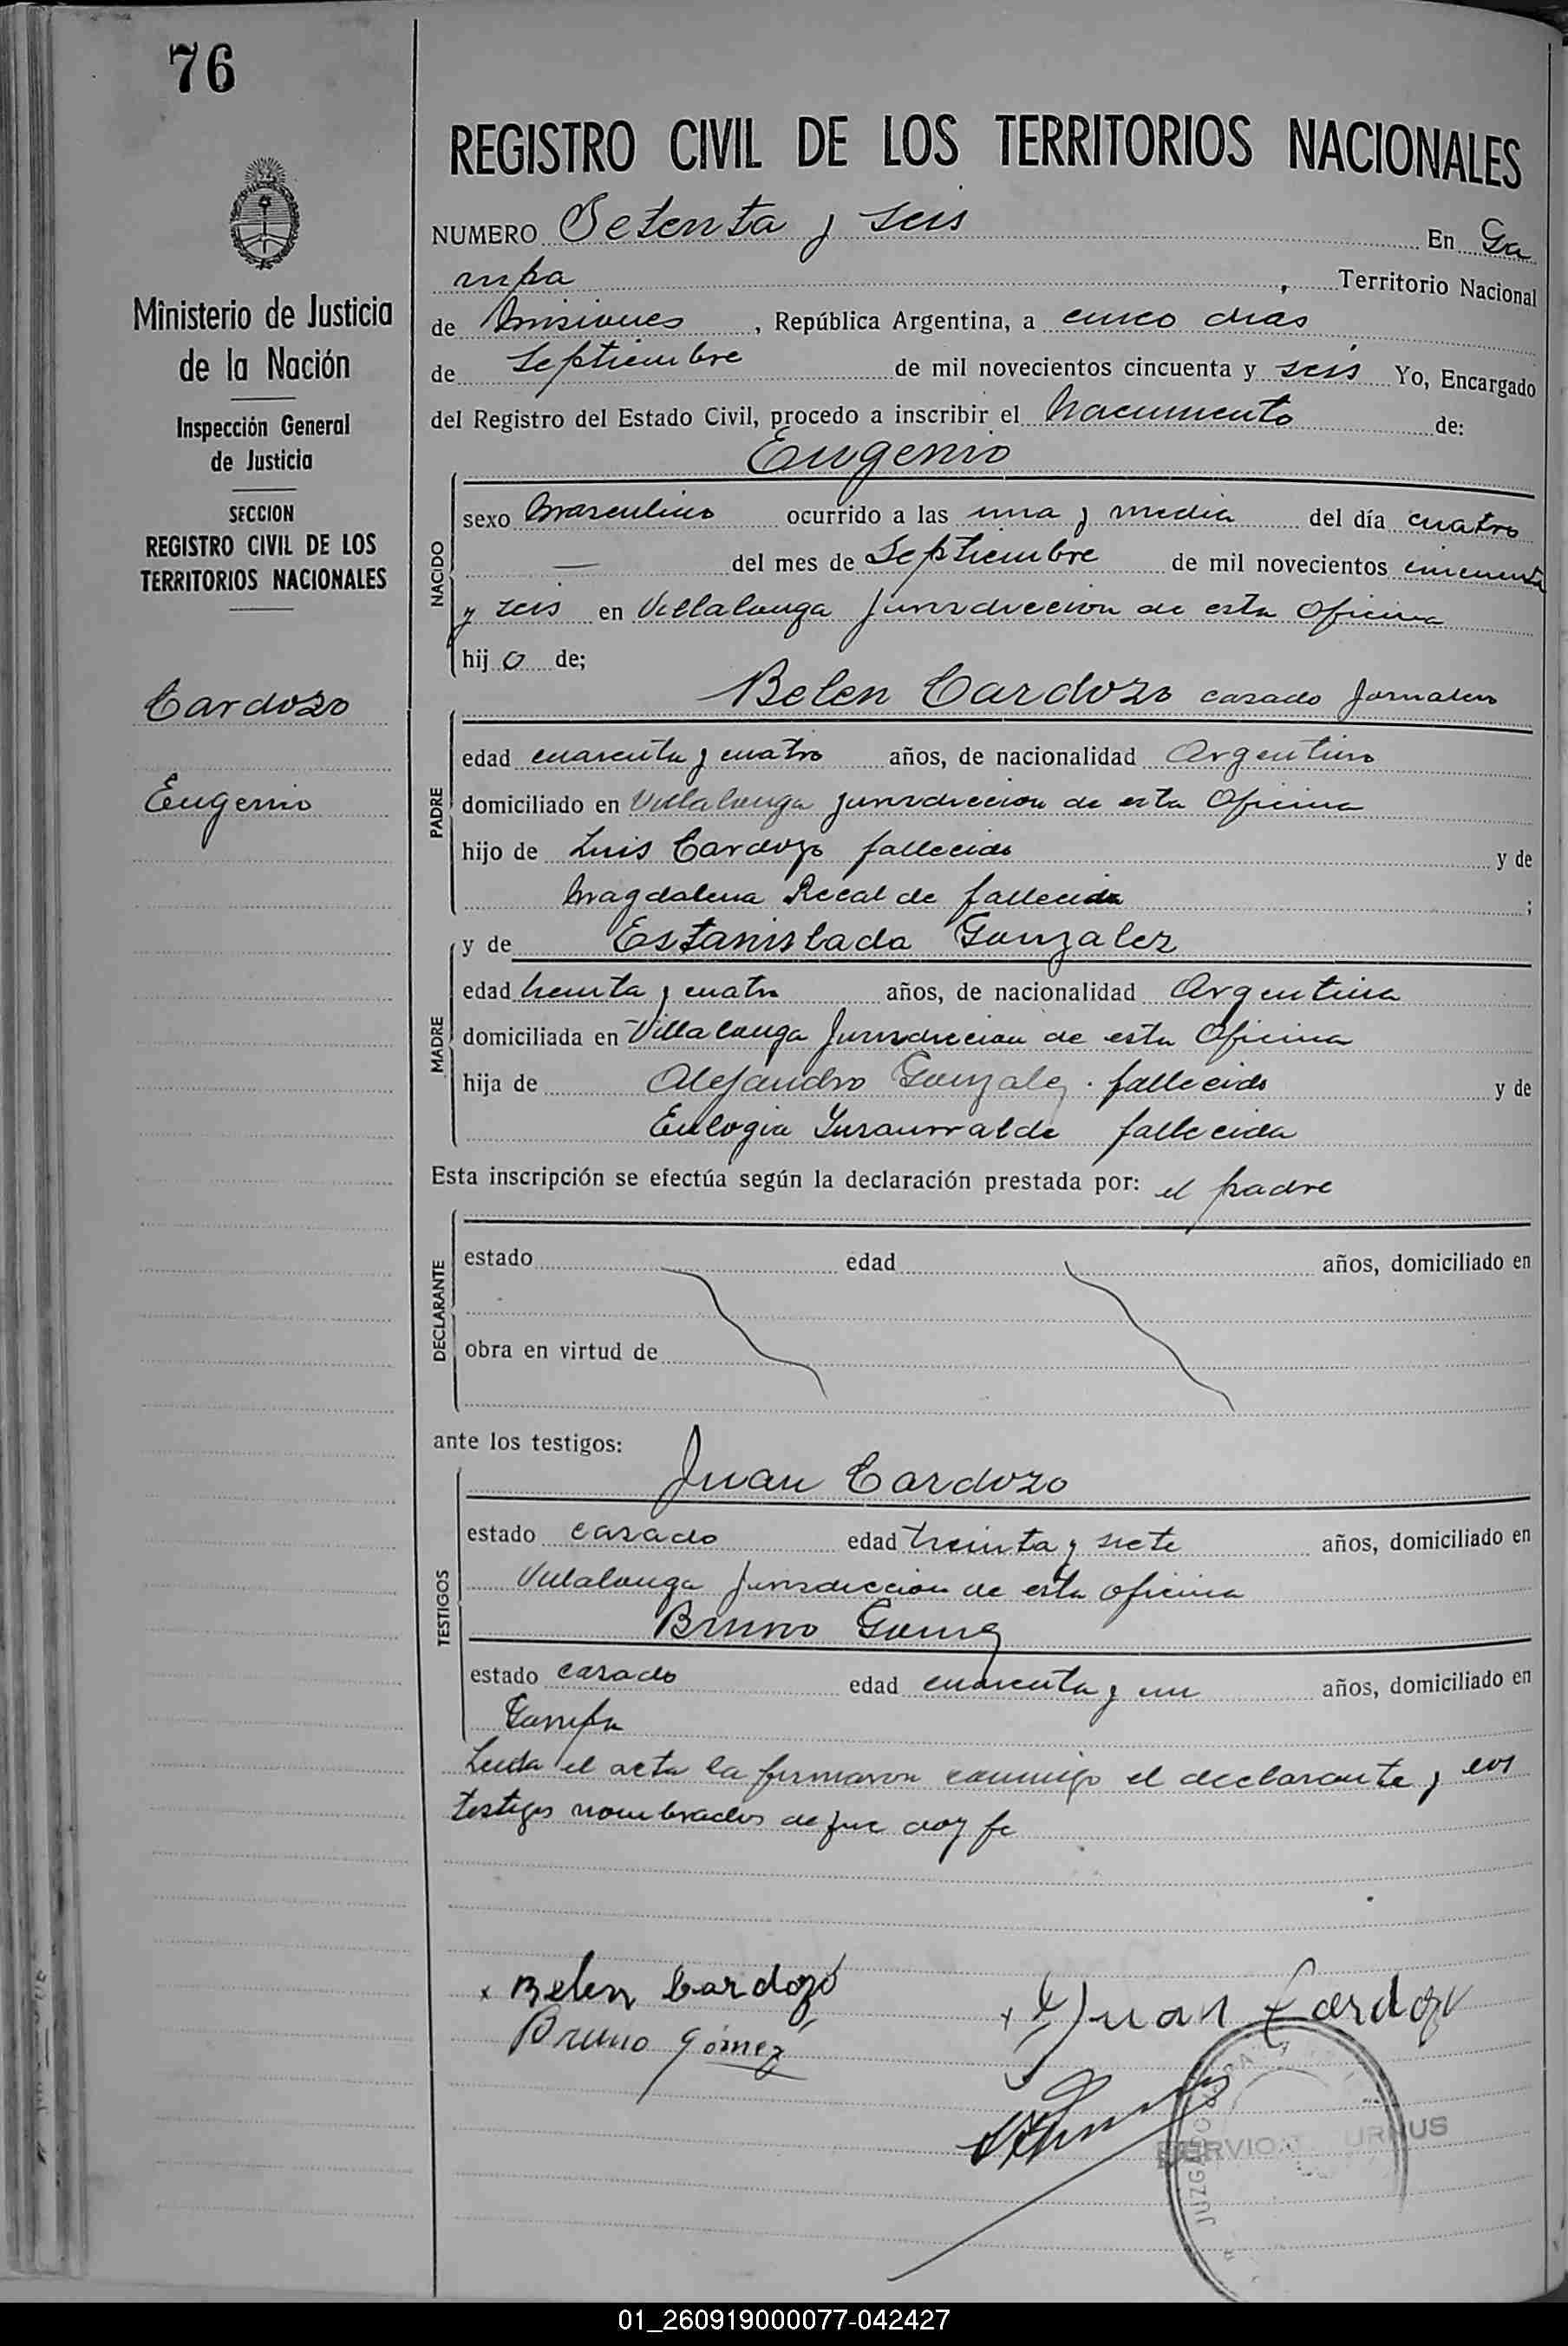 76
REGISTRO CIVIL DE LOS TERRITORIOS NACIONALES
Ministerio de Justicia
de la Nación
Inspección General
de Justicia
SECCION
REGISTRO CIVIL DE LOS
TERRITORIOS NACIONALES
Cardozo
Eugenio
NUMERO Setenta y seis En Ga
rupa, Territorio Nacional
de Misiones, República Argentina, a cinco dias
de Septiembre de mil novecientos cincuenta y seis Yo, Encargado
del Registro del Estado Civil, procedo a inscribir el Nacimiento de:
Eugenio
NACIDO
sexo Masculino ocurrido a las una y media del día cuatro
— del mes de Septiembre de mil novecientos cincuenta
y seis en Villalonga Jurisdiccion de esta Oficina
hij o de;
Belen Cardozo casado Jornalero
PADRE
edad cuarenta y cuatro años, de nacionalidad Argentino
domiciliado en Villalonga jurisdiccion de esta Oficina
hijo de Luis Cardozo fallecido y de
Magdalena Recalde fallecida ;
y de Estanislada Gonzalez
MADRE
edad treinta y cuatro años, de nacionalidad Argentina
domiciliada en Villalonga Jurisdiccion de esta Oficina
hija de Alejandro Gonzalez. fallecido y de
Eulogia Insaurralde fallecida
Esta inscripción se efectúa según la declaración prestada por: el padre
DECLARANTE
estado edad años, domiciliado en
obra en virtud de
ante los testigos:
Juan Cardozo
TESTIGOS
estado casado edad treinta y siete años, domiciliado en
Villalonga Jurisdiccion de esta oficina
Bruno Gomez
estado casado edad cuarenta y un años, domiciliado en
Garupa
Leida el acta la firmaron conmigo el declarante y los
testigos nombrados de que doy fe
x Belen Cardozo
x Juan Cardozo
Bruno Gómez
JUZGADO
01_260919000077-042427